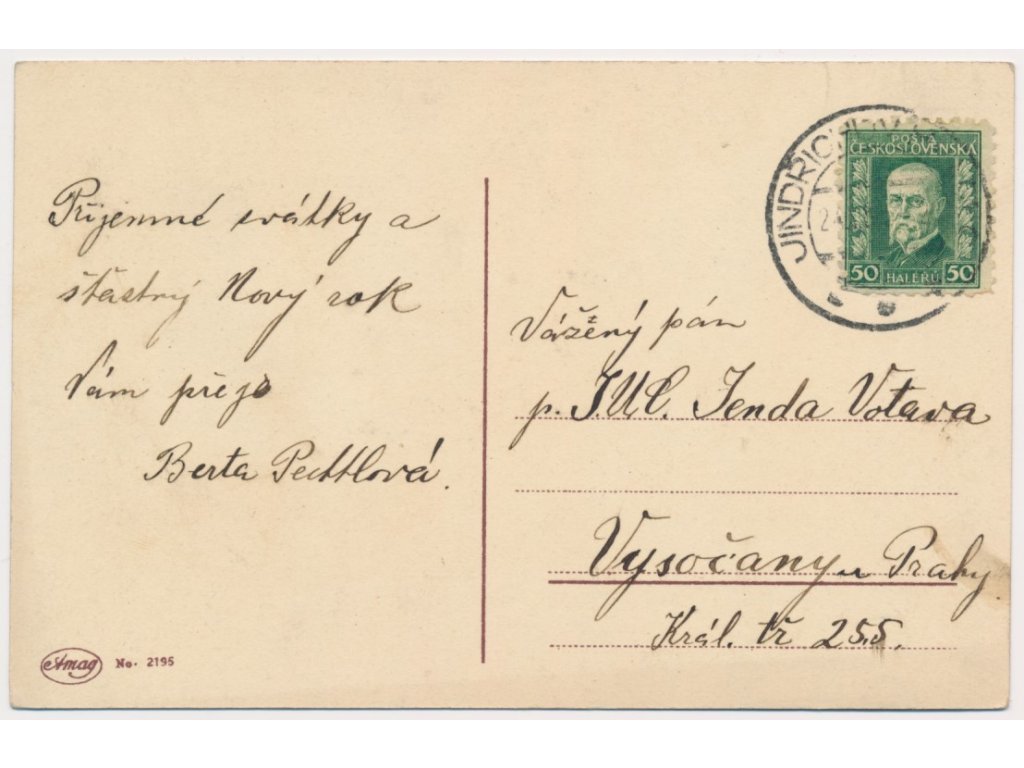 Příjemné svátky a
šťastný Nový rok
Vám přeje
Berta Pechtlová.
Amag No. 2195
JINDŘICHŮV
24
POŠTA
ČESKOSLOVENSKÁ
50 HALÉŘŮ 50
Vážený pán
p. JUC. Jenda Votava
Vysočany u Prahy
Král. tř 255.